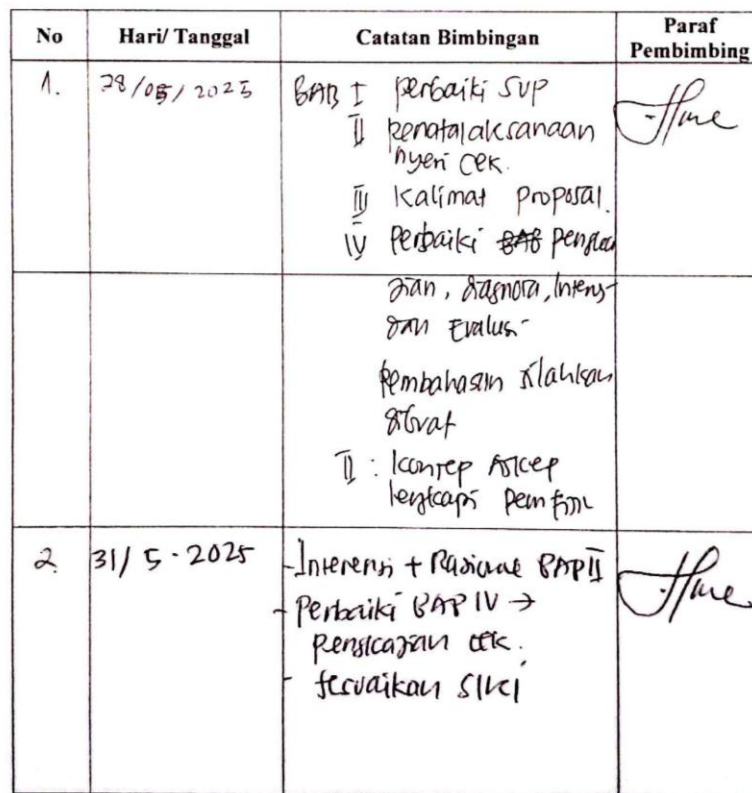 No Hari/ Tanggal Catatan Bimbingan Paraf Pembimbing
1. 28/05/2025 BAB I perbaiki SVP
II penatalaksanaan
nyeri cek.
III Kalimat proposal.
IV Perbaiki BAB pengka
jian, diagnosa, Intens-
dan Evalusi
pembahasan silahkan
dibuat
II : konsep Askep
lengkapi pem fisik
2. 31/5-2025 - Interensi + Rasionale BAP II
- Perbaiki BAP IV →
pengkajian cek.
- sesuaikan SIKI